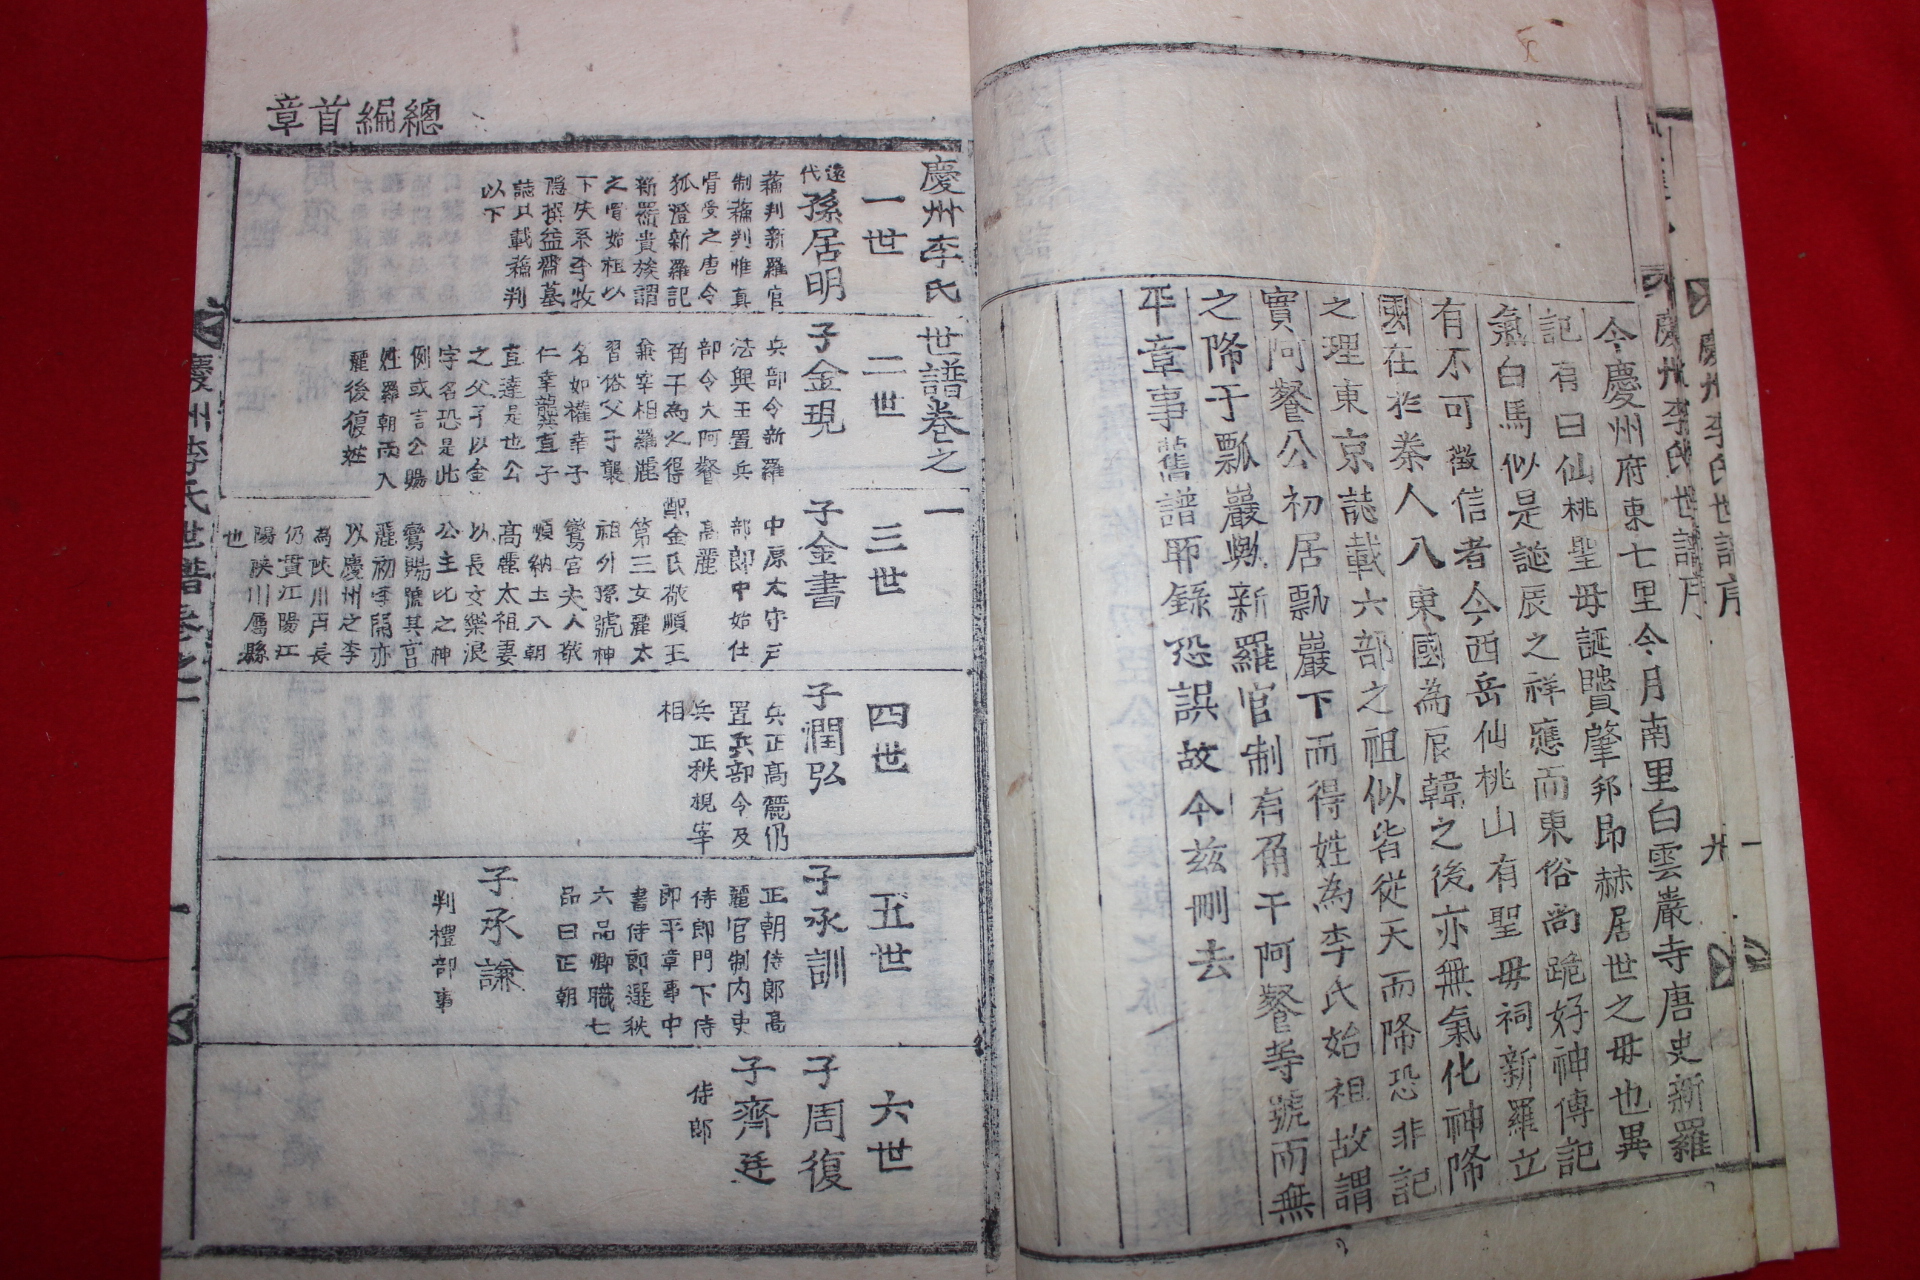 今慶州府東七里今月南里白雲巖寺唐史新羅
記有曰仙桃聖母誕賢肇邦即赫居世之母也異
氣白馬似是誕辰之祥應而東俗尚詭好神傳記
有不可徵信者今西岳仙桃山有聖母祠新羅立
國在於秦人入東國為辰韓之後亦無氣化神降
之理東京誌載六部之祖似皆從天而降恐非記
實阿餐公初居瓢巖下而得姓為李氏始祖故謂
之降于瓢巖歟新羅官制有角干阿餐等號而無
平章事舊譜所錄恐誤故今茲刪去
慶州李氏世譜序
總編首章
慶州李氏世譜卷之一
一世
遠代孫居明
蘓判新羅官
制蘓判惟真
骨受之唐令
狐澄新羅記
新羅貴族謂
之骨始祖以
下失系李牧
隱撰益齋墓
誌只載蘓判
以下
二世
子金現
兵部令新羅
法興王置兵
部令大阿餐
角干為之得
兼宰相羅麗
習俗父子襲
名如權幸子
仁幸龔直子
直達是也公
之父子以金
字名恐是此
例或言公賜
姓羅朝而入
麗後復姓
三世
子金書
中原太守戶
部郎中始仕
高麗
配金氏敬順王
第三女麗太
祖外孫號神
鸞宮夫人敬
順納土入朝
高麗太祖妻
以長女樂浪
公主比之神
鸞賜號其宮
麗初李閒亦
以慶州之李
為陜川丙長
仍貫江陽江
陽陜川屬縣
也
四世
子潤弘
兵正高麗仍
置兵部令及
兵正秩視宰
相
五世
子承訓
正朝侍郎高
麗官制內吏
侍郎門下侍
郎平章事中
書侍郎選秩
六品卿職七
品曰正朝
子承謙
判禮部事
六世
子周復
子齊廷
侍郎
慶州李氏世譜卷之一
一